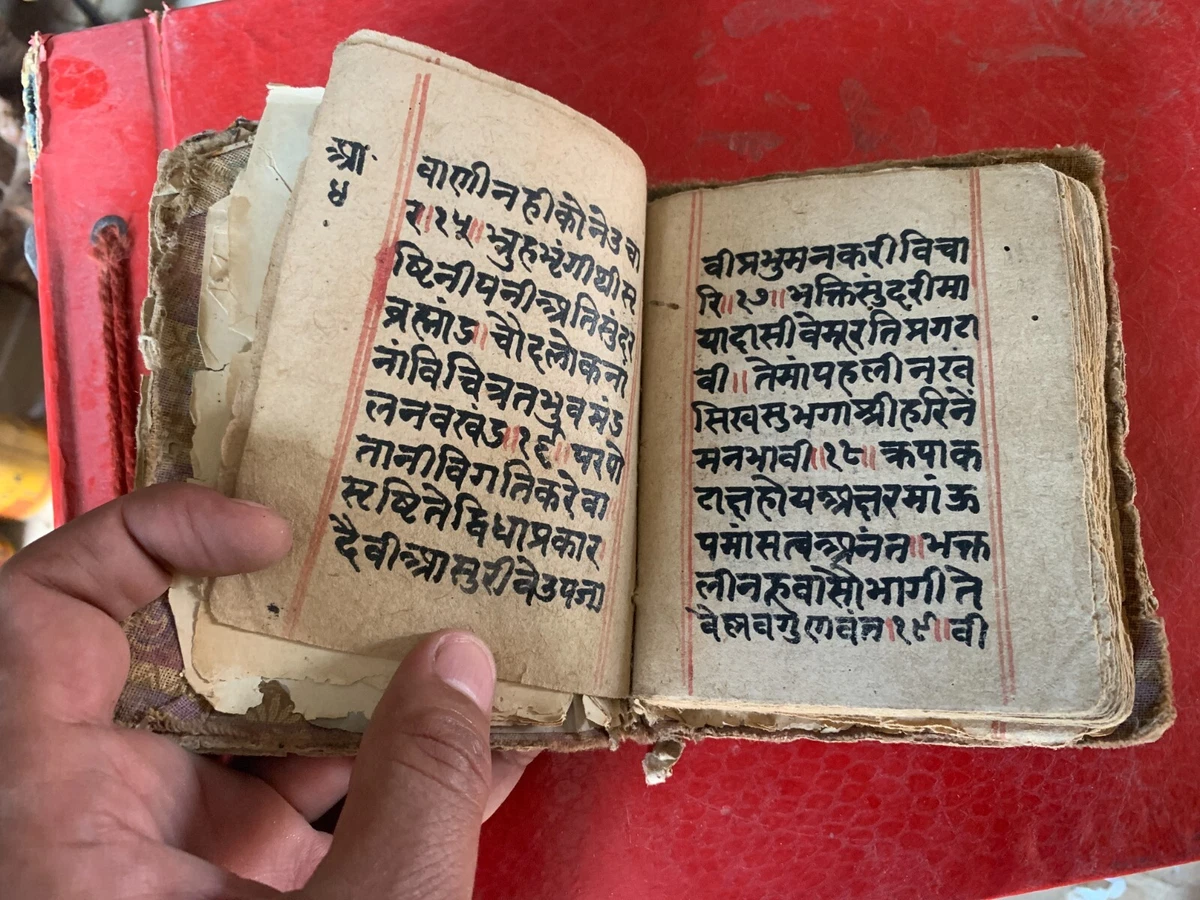 श्रा
४
वाणीनहीकोनेउचा
र॥२५॥भ्रुहभृंगीथीस्ट
ष्टिनीपनीअतिसुंदर
ब्रह्मांड॥चौदलोकना
नांविचित्रतभुवमंड
लनवखंड॥२६॥परपो
तानीविगतिकरेवा
स्टष्टितेद्विधाप्रकार
दैवीआसुरीवेउपना
वीप्रभुमनकरीविचा
रि॥२७॥भक्तिसुंदरीमा
यादासीवेमूरतिप्रगटा
वी॥तेमांपहलीनखं
सिखसुभगाश्रीहरिनें
मनभावी॥२८॥क्रपाक
टाक्षहोयअक्षरमांऊ
पमांसत्वअनंत॥भक्त
लीनहवीसौभागीते
वैह्मवगुणवंत॥२९॥वी